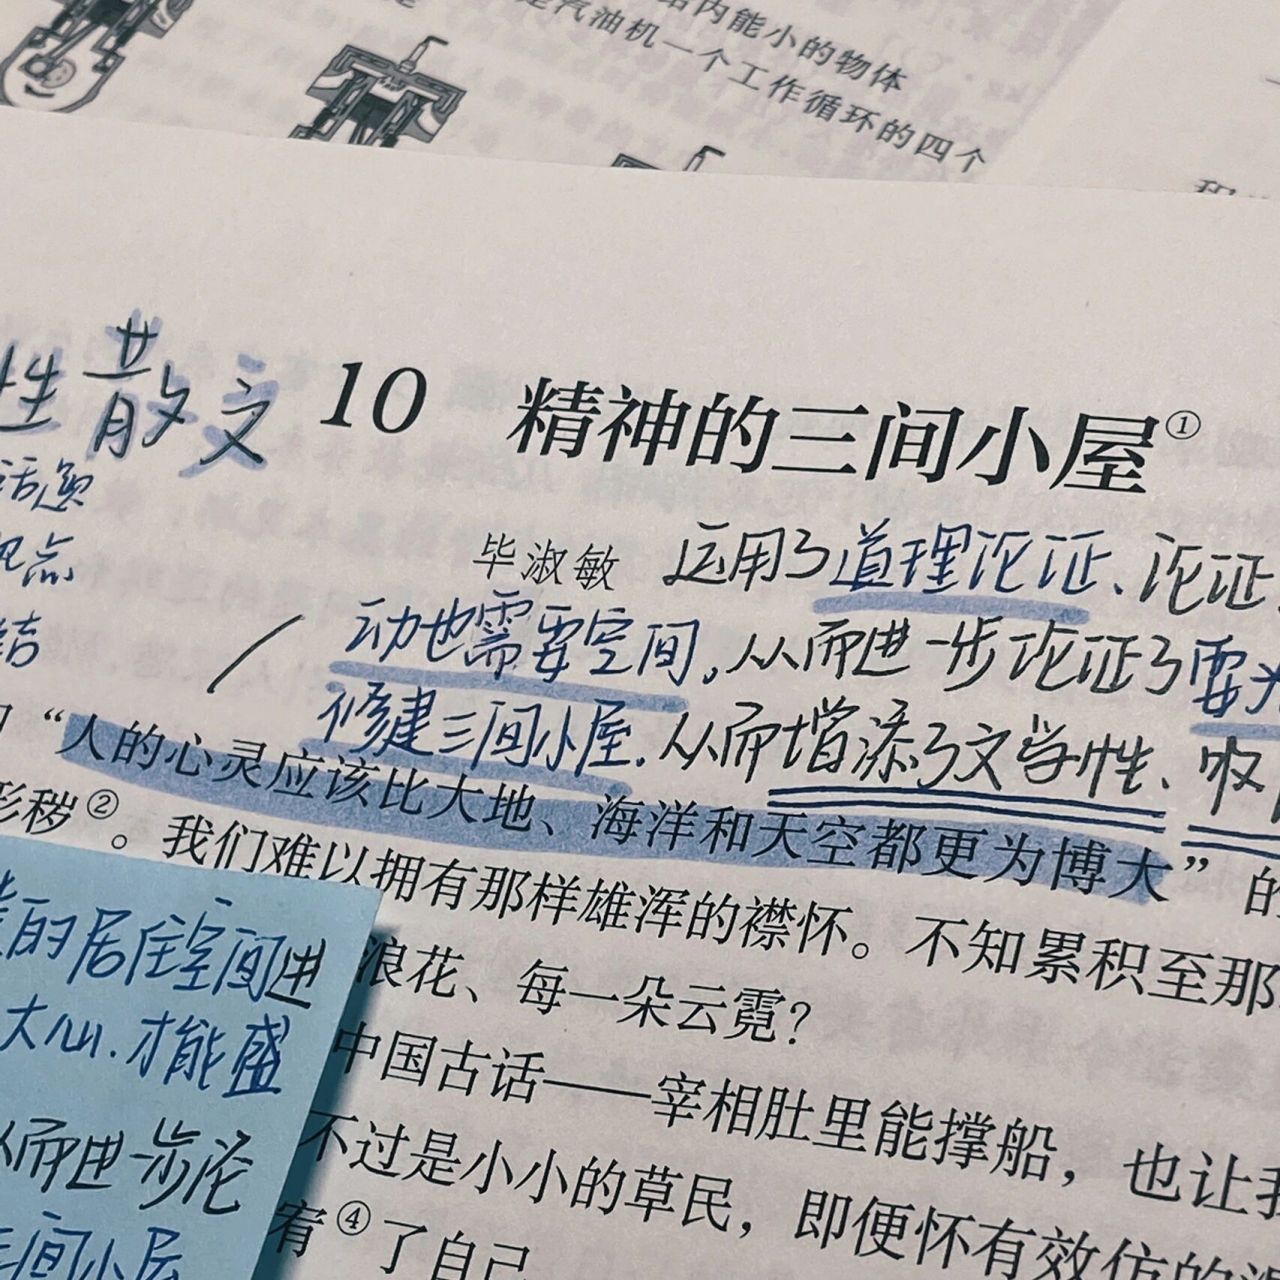 内能小的物体
是汽油机一个工作循环的四个
性散文
10 精神的三间小屋①
话题
观点
结
毕淑敏 运用了道理论证、论证
动也需要空间,从而进一步论证了要为
修建三间小屋.从而增添了文学性、
“人的心灵应该比大地、海洋和天空都更为博大”的
形秽②。我们难以拥有那样雄浑的襟怀。不知累积至那
浪花、每一朵云霓?
中国古话——宰相肚里能撑船，也让我
不过是小小的草民，即便怀有效仿的
宥④了自己
的居住空间进
大心.才能盛
从而进一步论
三间小屋